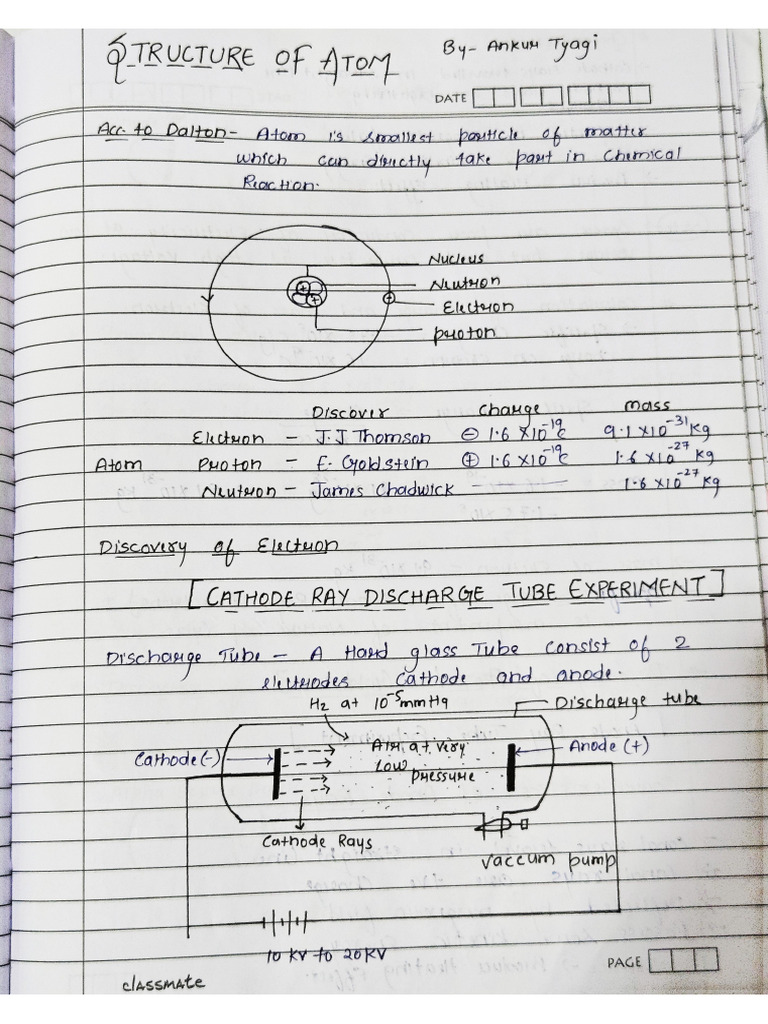 STRUCTURE OF ATOM
By- Ankur Tyagi
DATE
Acc. to Dalton - Atom is smallest particle of matter
which can directly take part in Chemical
Reaction.
Nucleus
Neutron
Electron
proton
Discover Charge mass
Electron - J.J Thomson ⊖ 1.6 X10⁻¹⁹c 9.1 X10⁻³¹ Kg
Atom Proton - E. Goldstein ⊕ 1.6 X10⁻¹⁹c 1.6 X10⁻²⁷ Kg
Neutron - James Chadwick 1.6 X10⁻²⁷ Kg
Discovery of Electron
[CATHODE RAY DISCHARGE TUBE EXPERIMENT]
Discharge Tube - A Hard glass Tube consist of 2
electrodes cathode and anode.
H₂ at 10⁻⁵mmHg
Discharge tube
Cathode(-)
Air at very
Low
pressure
Anode (+)
Cathode Rays
vaccum pump
10 KV to 20KV
PAGE
classmate